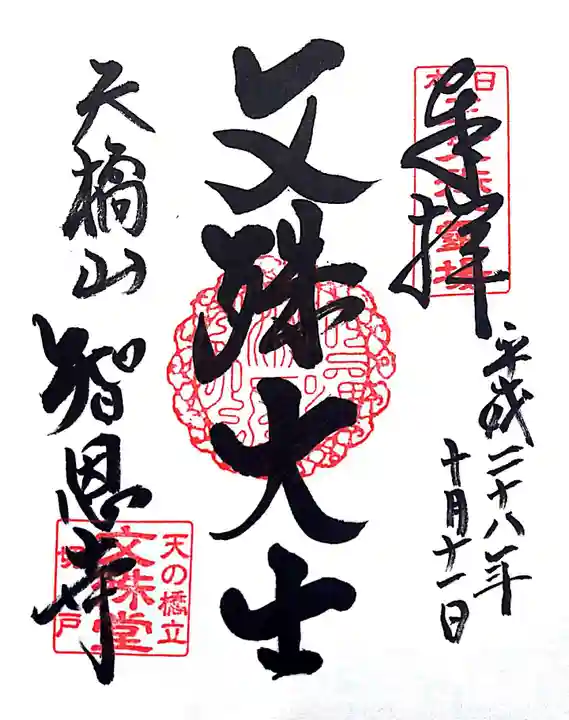 奉拝
平成二十八年
十月十一日
文殊大士
天橋山
智恩寺
日本三文殊霊場
天の橋立
文殊堂
切戸